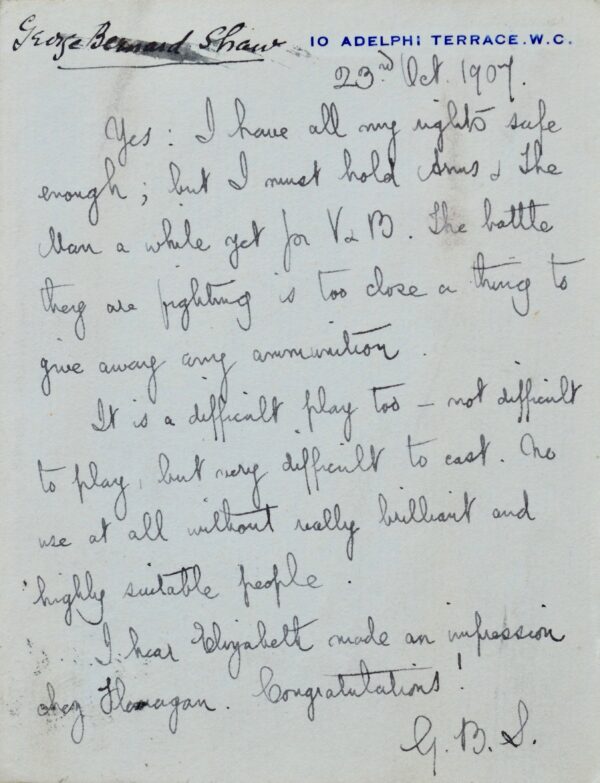 George Bernard Shaw
10 ADELPHI TERRACE. W.C.
23rd Oct. 1907.
Yes: I have all my rights safe
enough; but I must hold Arms & The
Man a while yet for V & B. The battle
they are fighting is too close a thing to
give away any ammunition.
It is a difficult play too – not difficult
to play, but very difficult to cast. No
use at all without really brilliant and
highly suitable people.
I hear Elizabeth made an impression
chez Flanagan. Congratulations!
G. B. S.